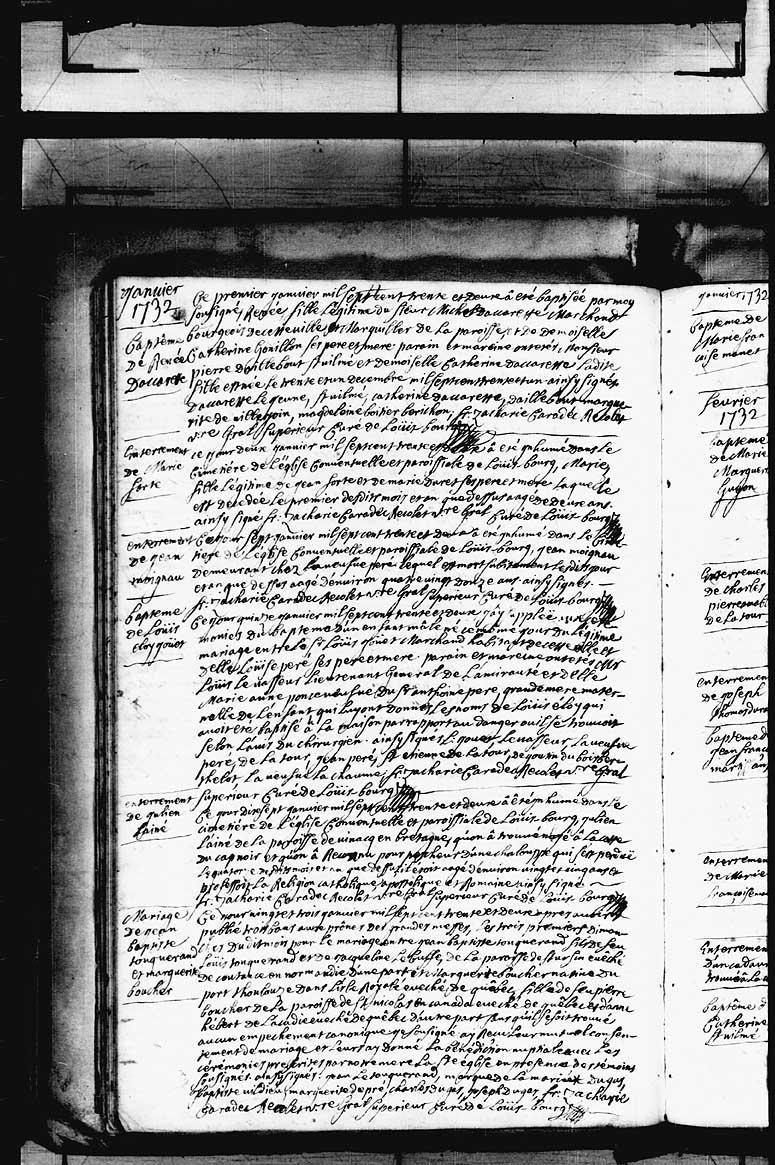 Janvier
1732
Baptême
De Renée
Daccarette
Ce premier janvier mil sept cent trente et deux â été baptisée par moy
soussigné Renée fille Légitime du sieur Michel Daccarette Marchand
bourgeois de cette ville et Marguiller de La paroisse et de demoiselle
Catherine Gonillon ses pere et mere parain et maraine ont etés, Monsieur
pierre Daillebout St vilmé et demoiselle Catherine Daccarette Ladite
fille est née le trente et un decembre mil sept cent trente et un ainsy signés
Daccarette Le jeune, St vilmé, Catherine daccarette, daillebout, margue-
rite de villejoin, magdeloine boitier berichon, fr. Zacharie Caradec Recolet
v.re Gral superieur Curé de Loüis bourg
Enterrement
de Marie
forte
Ce jour deux janvier mil sept cent trente et deux â été jnhumé dans Le
Cimetiére de L'église Conventuelle et paroissiale de Loüis bourg, Marie
fille Légitime de jean forte et de marie duret ses pere et mere Laquelle
est decedée Le premier desdits mois et an que dessus aagé de deux ans
ainsy signé fr. Zacharie Caradec Recolet v.re Gral Curé de Loüis bourg
enterrement
de jean
moignau
Ce jour sept janvier mil sept cent trente et deux â été jnhumé dans Le Cime-
tiere de L'église Conventuelle et paroissiale de Loüis bourg, jean moignau
demeurant chez La veufve peré Lequel est mort subitement Lesdits jour
et an que dessus aagé d'environ quatre vingt douze ans ainsy signés
fr. Zacharie Caradec Recolet v.re Gral superieur Curé de Loüis bourg
bapteme
de Loüis
eloy goüet
Ce jour quinze janvier mil sept cent trente et deux j'ay supplée aux cere-
monies du Baptême d'un enfant mâle né ce même jour du Légitime
mariage entre Le Sr Loüis Goüet Marchand habitant de cette ville et
Delle Loüise peré ses pere et mere. parain et mareine ont etés Mr
Loüis Levasseur Lieutenant General de L'amirauté et delle
Marie anne ponce veufve du Sr anthoine peré, grande mere mater-
nelle de L'enfant qui Luy ont donné Les noms de Loüis eloy qui
avoit été baptisé à La maison par rapport au danger ou il se trouvoit
selon L'avis du Chirurgien. ainsy signés L. goüet, Levasseur, La veufve
peré, de La tour, jean peré, St etienne de La tour, degoutin du bois Ber-
thelot La veufve La chaume, fr. Zacharie Caradec Recolet v.re Gral
superieur Curé de Loüis bourg
enterrement
de julien
Lainé
Ce jour dix sept janvier mil sept cent trente et deux â été jnhumé dans Le
cimetiére de L'église Conventuelle et paroissiale de Loüis bourg, julien
Lainé de La paroisse de vinacq en bretagne, qu'on à trouvé noyé à La coste
du cap noir et qu'on à Reconnu pour pescheur d'une chalouppe qui s'est perdüe
Le quatorze desdits mois et an que dessus il étoit aagé d'environ vingt et cinq ans et
professoit La Religion catholique apostolique et Romaine ainsy signé
fr. Zacharie Caradec Recolet v.re Gral superieur Curé de Loüis bourg
Mariage
de jean
baptiste
tonquerand
et marguerite
boucher
Ce jour vingt et trois janvier mil sept cent trente et deux apres avoir
publié trois bans aux prônes des grandes messes, Les trois premiers diman-
ches Dudit mois pour Le mariage entre jean baptiste tonquerand fils de feu
Loüis tonquerand et de jaqueline Le buffe, de La paroisse de St ursin evêché
de coutance en normandie d'une part et Marguerite boucher native du
port thoulouze dans L'isle Royale evêché de québec, fille de feu pierre
boucher de La paroisse de St nicolas en canada evêché de québec et d'anne
hébert de Lacadie evêché de québec d'autre part sans qu'il se soit trouvé
aucun empechement canonique je soussigné ay Receu Leur mutuel consen-
tement de mariage et Leur ay donné La bénédiction nuptiale avec Les
cérémonies prescrites par notre mere La Ste église en presence des témoins
soussignés. ainsy signés jean Le tonquerand, marque de La mariée X Dugas,
baptiste vildieu, marguerite dupré, charles dugas, joseph dugas, fr. Zacharie
Caradec Recolet v.re Gral superieur Curé de Loüis bourg
janvier 1732
baptême de
Marie fran
çoise menet
fevrier
1732
bapteme
de Marie
Marguerite
Guyon
Enterrement
de Charles
pierre
de La tour
enterrement
de joseph
thomas
bapteme d
jean franc
enterrement
de Marie
françoise
Enterrement
D'un cadavre
trouvé à La
baptême d
Catherine
St vilmé